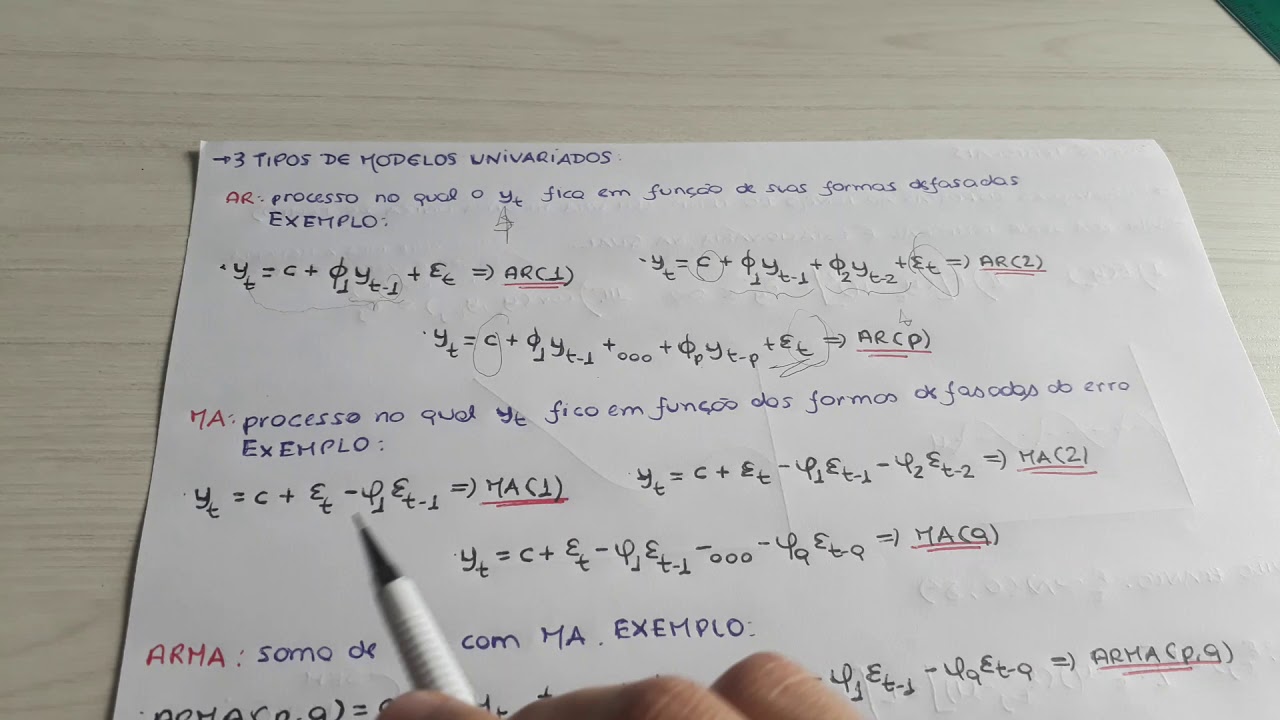 →3 TIPOS DE MODELOS UNIVARIADOS:
AR: processo no qual o yₜ fica em função de suas formas defasadas
EXEMPLO:
· yₜ = c + ϕ₁yₜ₋₁ + εₜ => AR(1)
· yₜ = c + ϕ₁yₜ₋₁ + ϕ₂yₜ₋₂ + εₜ => AR(2)
· yₜ = c + ϕ₁yₜ₋₁ + ... + ϕₚyₜ₋ₚ + εₜ => AR(p)
MA: processo no qual yₜ fica em função das formas defasadas do erro
EXEMPLO:
· yₜ = c + εₜ - φ₁εₜ₋₁ => MA(1)
· yₜ = c + εₜ - φ₁εₜ₋₁ - φ₂εₜ₋₂ => MA(2)
· yₜ = c + εₜ - φ₁εₜ₋₁ - ... - φqεt-q => MA(q)
ARMA: soma de com MA. EXEMPLO:
· ARMA(p,q) = - φ₁εₜ₋₁ - φqεt-q => ARMA(p,q)